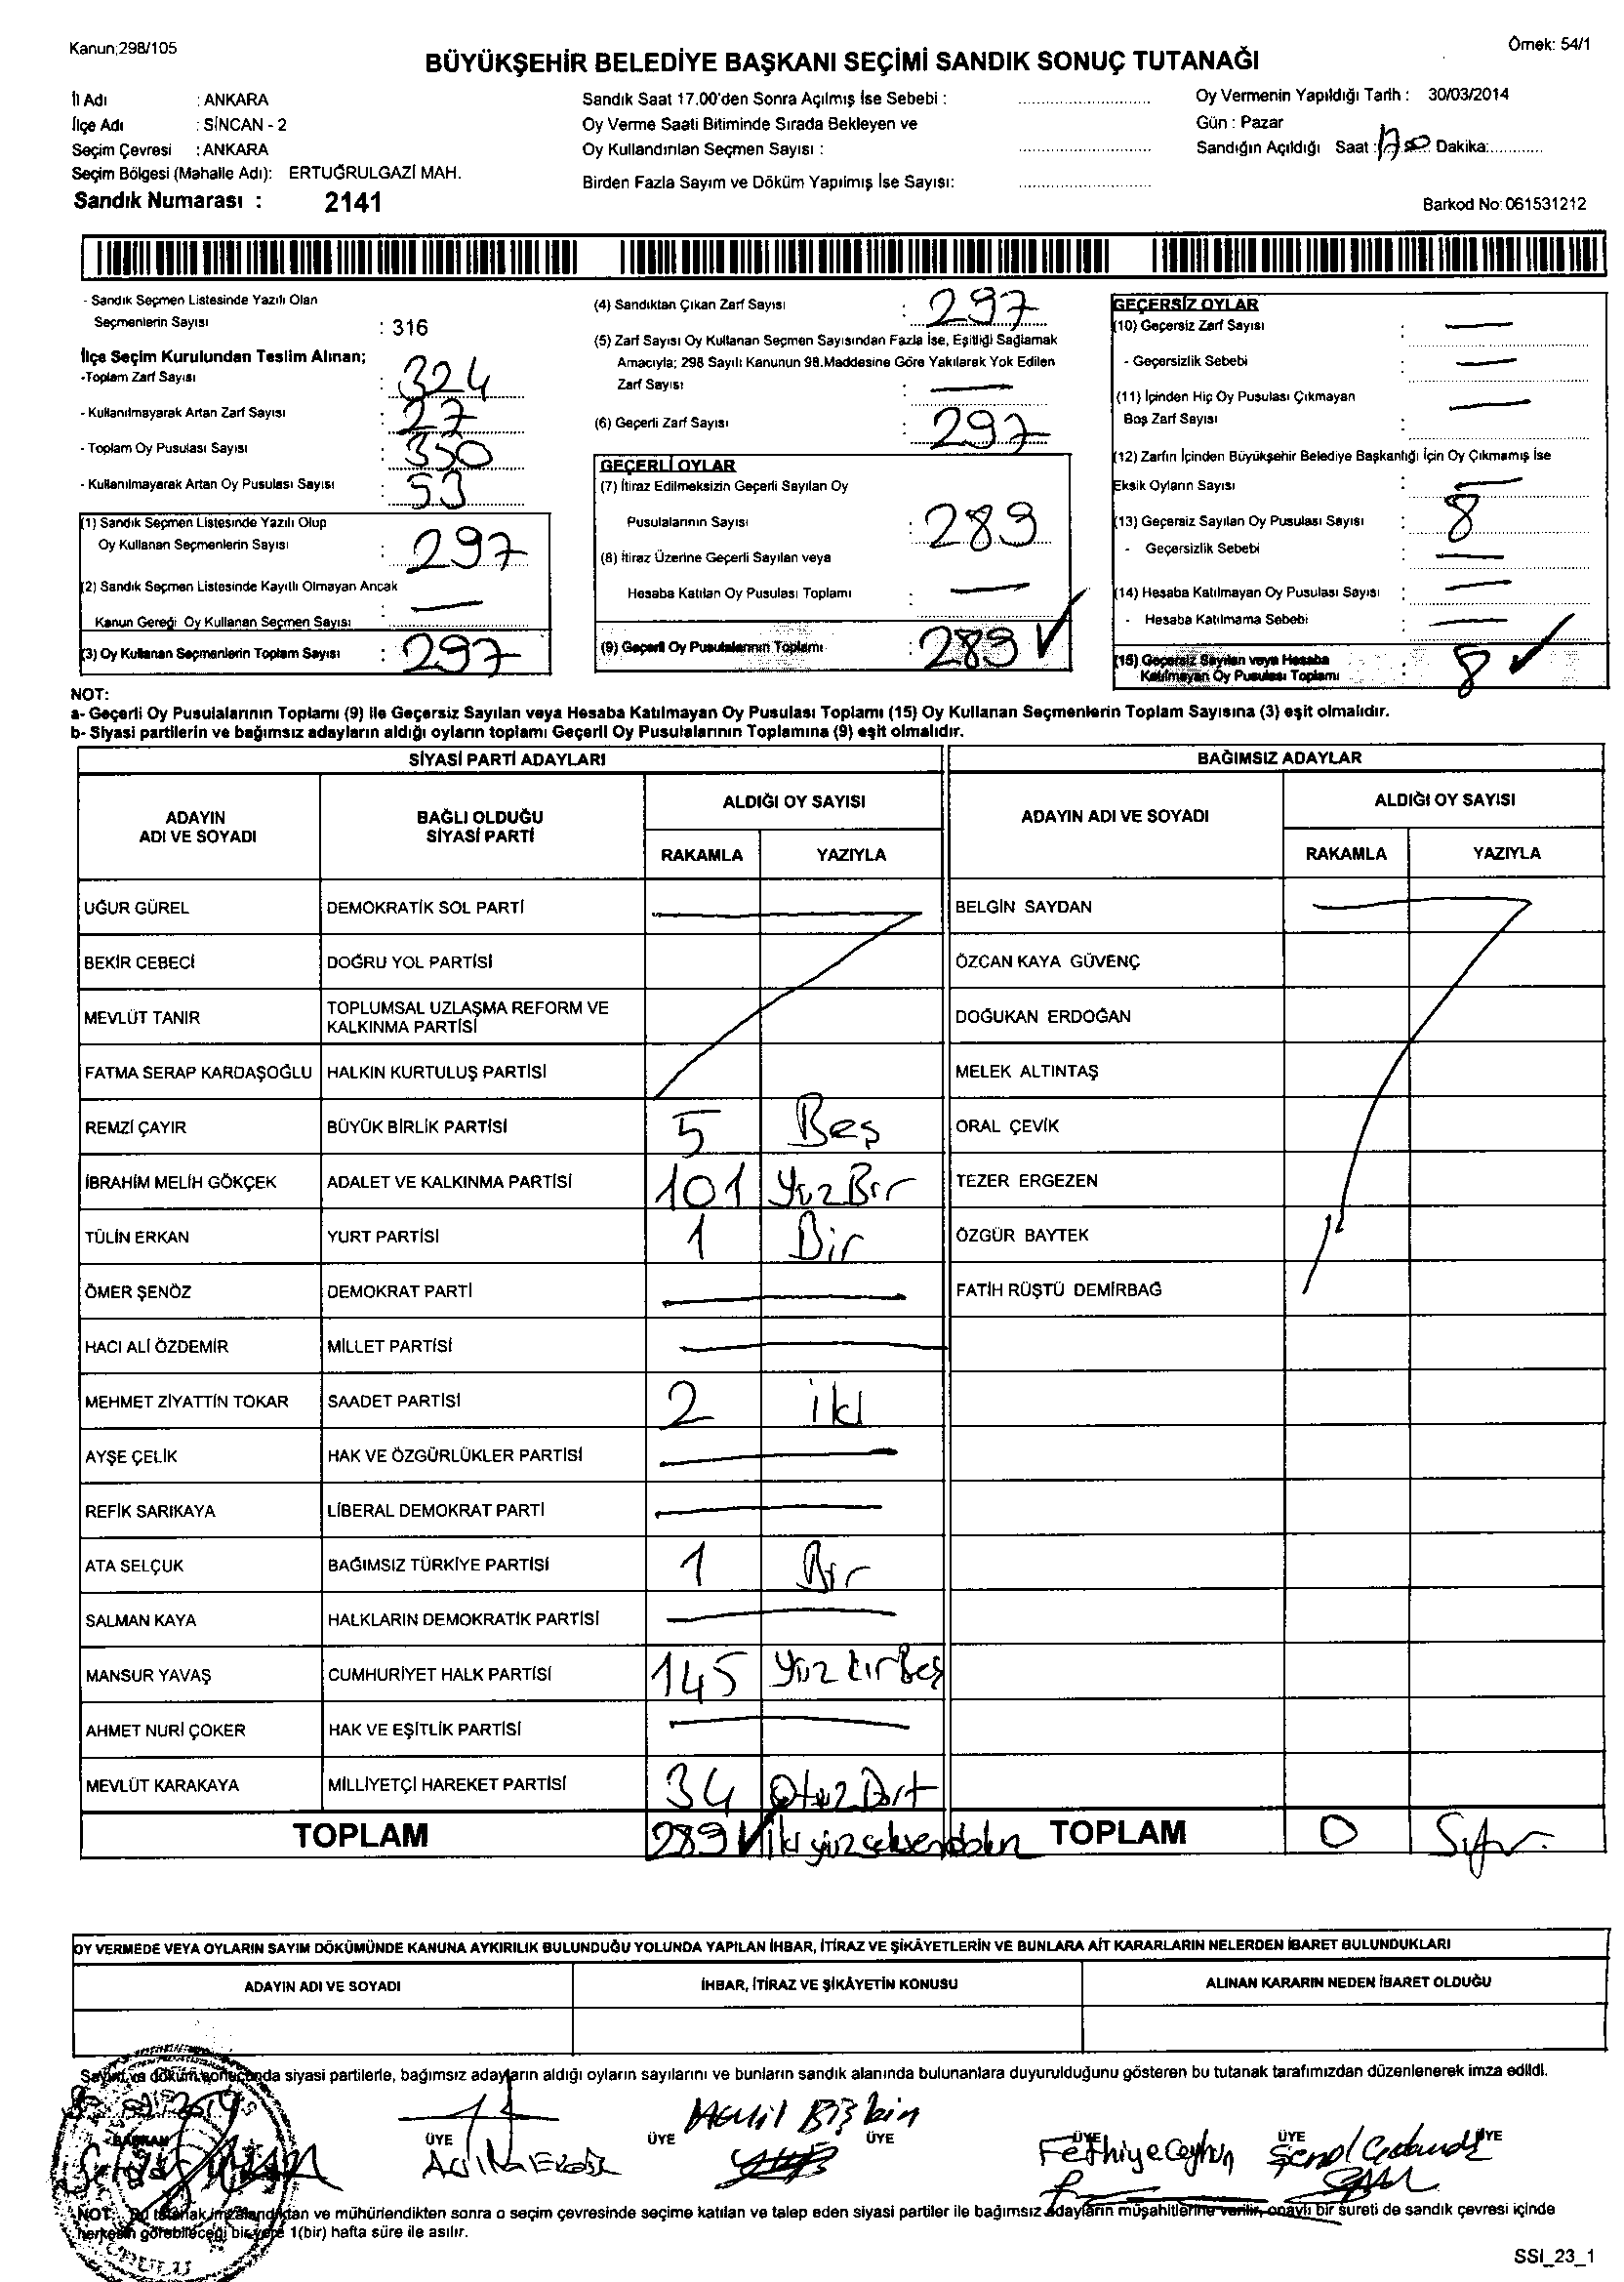 Kanun;298/105
Örnek: 54/1
BÜYÜKŞEHİR BELEDİYE BAŞKANI SEÇİMİ SANDIK SONUÇ TUTANAĞI
İl Adı : ANKARA
İlçe Adı : SİNCAN - 2
Seçim Çevresi : ANKARA
Seçim Bölgesi (Mahalle Adı): ERTUĞRULGAZİ MAH.
Sandık Numarası : 2141
Sandık Saat 17.00'den Sonra Açılmış İse Sebebi :
Oy Verme Saati Bitiminde Sırada Bekleyen ve
Oy Kullandırılan Seçmen Sayısı :
Birden Fazla Sayım ve Döküm Yapılmış İse Sayısı:
Oy Vermenin Yapıldığı Tarih : 30/03/2014
Gün : Pazar
Sandığın Açıldığı Saat : Dakika:
Barkod No: 061531212
- Sandık Seçmen Listesinde Yazılı Olan
Seçmenlerin Sayısı : 316
İlçe Seçim Kurulundan Teslim Alınan;
-Toplam Zarf Sayısı : 324
- Kullanılmayarak Artan Zarf Sayısı : 27
- Toplam Oy Pusulası Sayısı : 350
- Kullanılmayarak Artan Oy Pusulası Sayısı : 53
(1) Sandık Seçmen Listesinde Yazılı Olup
Oy Kullanan Seçmenlerin Sayısı : 297
(2) Sandık Seçmen Listesinde Kayıtlı Olmayan Ancak
Kanun Gereği Oy Kullanan Seçmen Sayısı : —
(3) Oy Kullanan Seçmenlerin Toplam Sayısı : 297
(4) Sandıktan Çıkan Zarf Sayısı : 297
(5) Zarf Sayısı Oy Kullanan Seçmen Sayısından Fazla İse, Eşitliği Sağlamak
Amacıyla; 298 Sayılı Kanunun 98.Maddesine Göre Yakılarak Yok Edilen
Zarf Sayısı : —
(6) Geçerli Zarf Sayısı : 297
GEÇERLİ OYLAR
(7) İtiraz Edilmeksizin Geçerli Sayılan Oy
Pusulalarının Sayısı : 289
(8) İtiraz Üzerine Geçerli Sayılan veya
Hesaba Katılan Oy Pusulası Toplamı : —
(9) Geçerli Oy Pusulalarının Toplamı : 289 ✓
GEÇERSİZ OYLAR
(10) Geçersiz Zarf Sayısı : —
- Geçersizlik Sebebi : —
(11) İçinden Hiç Oy Pusulası Çıkmayan
Boş Zarf Sayısı : —
(12) Zarfın İçinden Büyükşehir Belediye Başkanlığı İçin Oy Çıkmamış İse
Eksik Oyların Sayısı : —
(13) Geçersiz Sayılan Oy Pusulası Sayısı : 8
- Geçersizlik Sebebi : —
(14) Hesaba Katılmayan Oy Pusulası Sayısı : —
- Hesaba Katılmama Sebebi : —
(15) Geçersiz Sayılan veya Hesaba
Katılmayan Oy Pusulası Toplamı : 8 ✓
NOT:
a- Geçerli Oy Pusulalarının Toplamı (9) ile Geçersiz Sayılan veya Hesaba Katılmayan Oy Pusulası Toplamı (15) Oy Kullanan Seçmenlerin Toplam Sayısına (3) eşit olmalıdır.
b- Siyasi partilerin ve bağımsız adayların aldığı oyların toplamı Geçerli Oy Pusulalarının Toplamına (9) eşit olmalıdır.
SİYASİ PARTİ ADAYLARI
ADAYIN ADI VE SOYADI
BAĞLI OLDUĞU SİYASİ PARTİ
ALDIĞI OY SAYISI
RAKAMLA YAZIYLA
UĞUR GÜREL DEMOKRATİK SOL PARTİ —
BEKİR CEBECİ DOĞRU YOL PARTİSİ
MEVLÜT TANIR TOPLUMSAL UZLAŞMA REFORM VE KALKINMA PARTİSİ
FATMA SERAP KARDAŞOĞLU HALKIN KURTULUŞ PARTİSİ
REMZİ ÇAYIR BÜYÜK BİRLİK PARTİSİ 5 Beş
İBRAHİM MELİH GÖKÇEK ADALET VE KALKINMA PARTİSİ 101 YüzBir
TÜLİN ERKAN YURT PARTİSİ 1 Bir
ÖMER ŞENÖZ DEMOKRAT PARTİ —
HACI ALİ ÖZDEMİR MİLLET PARTİSİ —
MEHMET ZİYATTİN TOKAR SAADET PARTİSİ 2 iki
AYŞE ÇELİK HAK VE ÖZGÜRLÜKLER PARTİSİ —
REFİK SARIKAYA LİBERAL DEMOKRAT PARTİ —
ATA SELÇUK BAĞIMSIZ TÜRKİYE PARTİSİ 1 Bir
SALMAN KAYA HALKLARIN DEMOKRATİK PARTİSİ —
MANSUR YAVAŞ CUMHURİYET HALK PARTİSİ 145 Yüz kırBeş
AHMET NURİ ÇOKER HAK VE EŞİTLİK PARTİSİ —
MEVLÜT KARAKAYA MİLLİYETÇİ HAREKET PARTİSİ 34 OtuzDört
TOPLAM 289 ✓
BAĞIMSIZ ADAYLAR
ADAYIN ADI VE SOYADI
ALDIĞI OY SAYISI
RAKAMLA YAZIYLA
BELGİN SAYDAN —
ÖZCAN KAYA GÜVENÇ
DOĞUKAN ERDOĞAN
MELEK ALTINTAŞ
ORAL ÇEVİK
TEZER ERGEZEN
ÖZGÜR BAYTEK
FATİH RÜŞTÜ DEMİRBAĞ
TOPLAM 0 Sıfır
OY VERMEDE VEYA OYLARIN SAYIM DÖKÜMÜNDE KANUNA AYKIRILIK BULUNDUĞU YOLUNDA YAPILAN İHBAR, İTİRAZ VE ŞİKÂYETLERİN VE BUNLARA AİT KARARLARIN NELERDEN İBARET BULUNDUKLARI
ADAYIN ADI VE SOYADI İHBAR, İTİRAZ VE ŞİKÂYETİN KONUSU ALINAN KARARIN NEDEN İBARET OLDUĞU
Sayım ve döküm sonucunda siyasi partilerle, bağımsız adayların aldığı oyların sayılarını ve bunların sandık alanında bulunanlara duyurulduğunu gösteren bu tutanak tarafımızdan düzenlenerek imza edildi.
BAŞKAN ÜYE ÜYE ÜYE ÜYE ÜYE ÜYE
Fethiye Ceyhun
NOT: Bu tutanak imzalandıktan ve mühürlendikten sonra o seçim çevresinde seçime katılan ve talep eden siyasi partiler ile bağımsız adayların müşahitlerine verilir, onaylı bir sureti de sandık çevresi içinde
herkesin görebileceği bir yere 1(bir) hafta süre ile asılır.
SSI_23_1